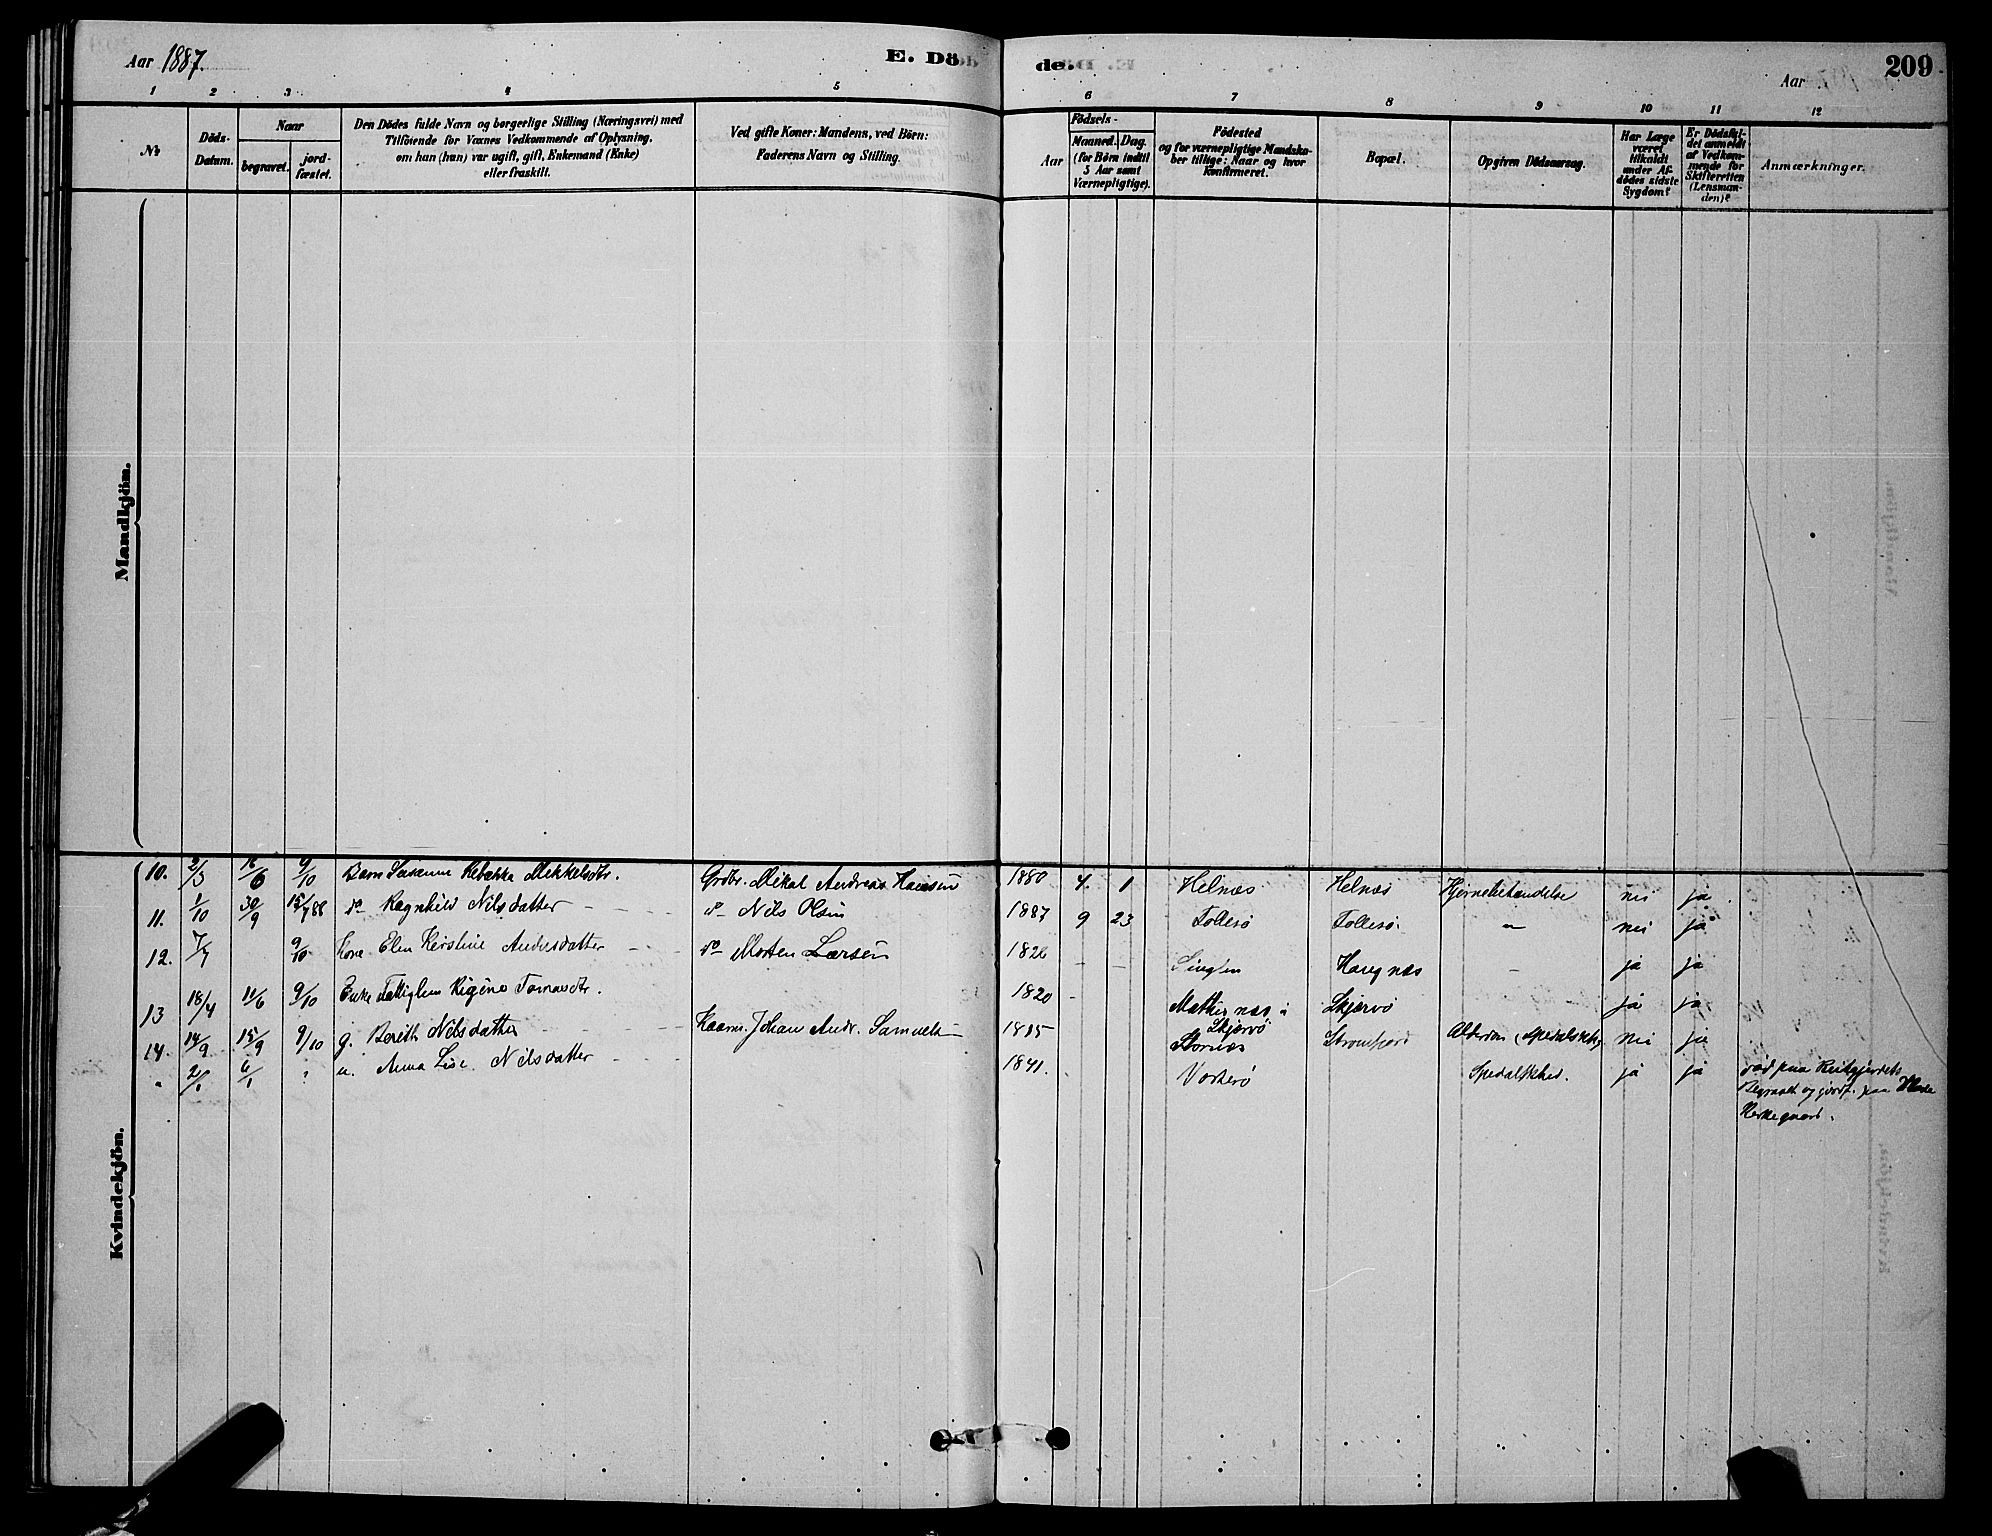 Aar 1887.
E. Döde.
Aar
209
1 2 3 4 5 6 7 8 9 10 11 12
No
Döds-Datum.
Naar
begravet.
jord-fæstet.
Den Dödes fulde Navn og borgerlige Stilling (Næringsvei) med
Tilföiende for Voxnes Vedkommende af Oplysning,
om han (hun) var ugift, gift, Enkemand (Enke)
eller fraskilt.
Ved gifte Koner: Mandens, ved Börn:
Faderens Navn og Stilling.
Födsels-
Aar
Maaned. Dag.
(for Börn indtil
5 Aar samt
Værnepligtige).
Födested
og for værnepligtige Mandska-
ber tillige: Naar og hvor
konfirmeret.
Bopæl.
Opgiven Dödsaarsag.
Har Læge
været
tilkaldt
under Af-
dödes sidste
Sygdom?
Er Dödsfal-
det anmeldt
af Vedkom-
mende for
Skifteretten
(Lensman-
den)?
Anmærkninger.
Mandkjön.
Kvindekjön.
10. 2/3 16/6 9/10 Barn Susanna Rebækka Mikkelsdtr. Grdbr. Mikal Andreas Hansen 1880 4. 1 Helnæs Helnæs Hjernebetændelse nei ja
11. 1/10 30/9 15/7 88 do Ragnhild Nilsdatter do Nils Olsen 1887 9 23 Follesö Follesö nei ja
12. 7/7 9/10 Kone Elen Kirstine Andersdatter do Morten Larsen 1826 - - Haugnæs - ja ja
13 18/4 11/6 9/10 Enke Regine Tomasdtr. 1820 - Mattisnæs i Skjærvö Skjærvö ja ja
14. 14/9 15/9 9/10 g. Berith Nilsdatter Johan Andr. Samuels 1815 Stornæs Straumfjord Alderdom (Spedalskh) nei ja
" 2/1 6/1 " u. Anna Lise Nilsdatter 1841. Vorterö Spedalskhed. ja ja död paa Reitgjerdets
Begravet og jordf. paa Hlade
Kirkegaard.